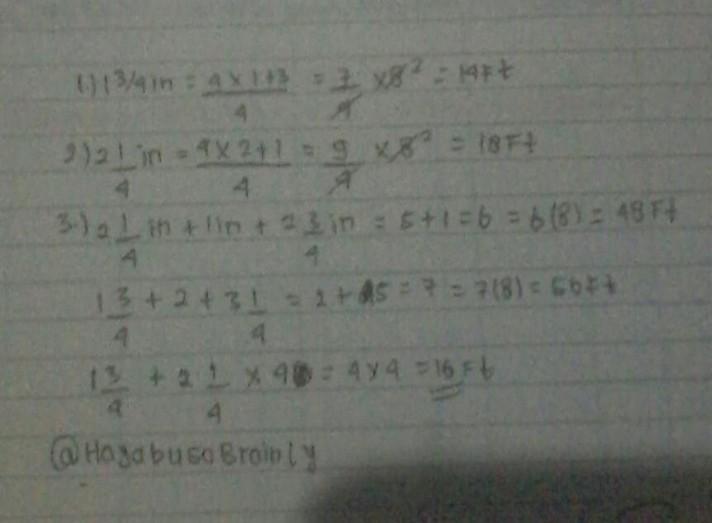 1.) 1 3/4 in = 4 x 1+3 / 4 = 7/4 x 8² = 14Ft
2) 2 1/4 in = 4 x 2+1 / 4 = 9/4 x 8² = 18Ft
3.) 2 1/4 in + 1in + 2 3/4 in = 5+1 = 6 = 6(8) = 48Ft
1 3/4 + 2 + 3 1/4 = 2 + 5 = 7 = 7(8) = 56Ft
1 3/4 + 2 1/4 x 4 = 4x4 = 16Ft
@HazabusaBrainly